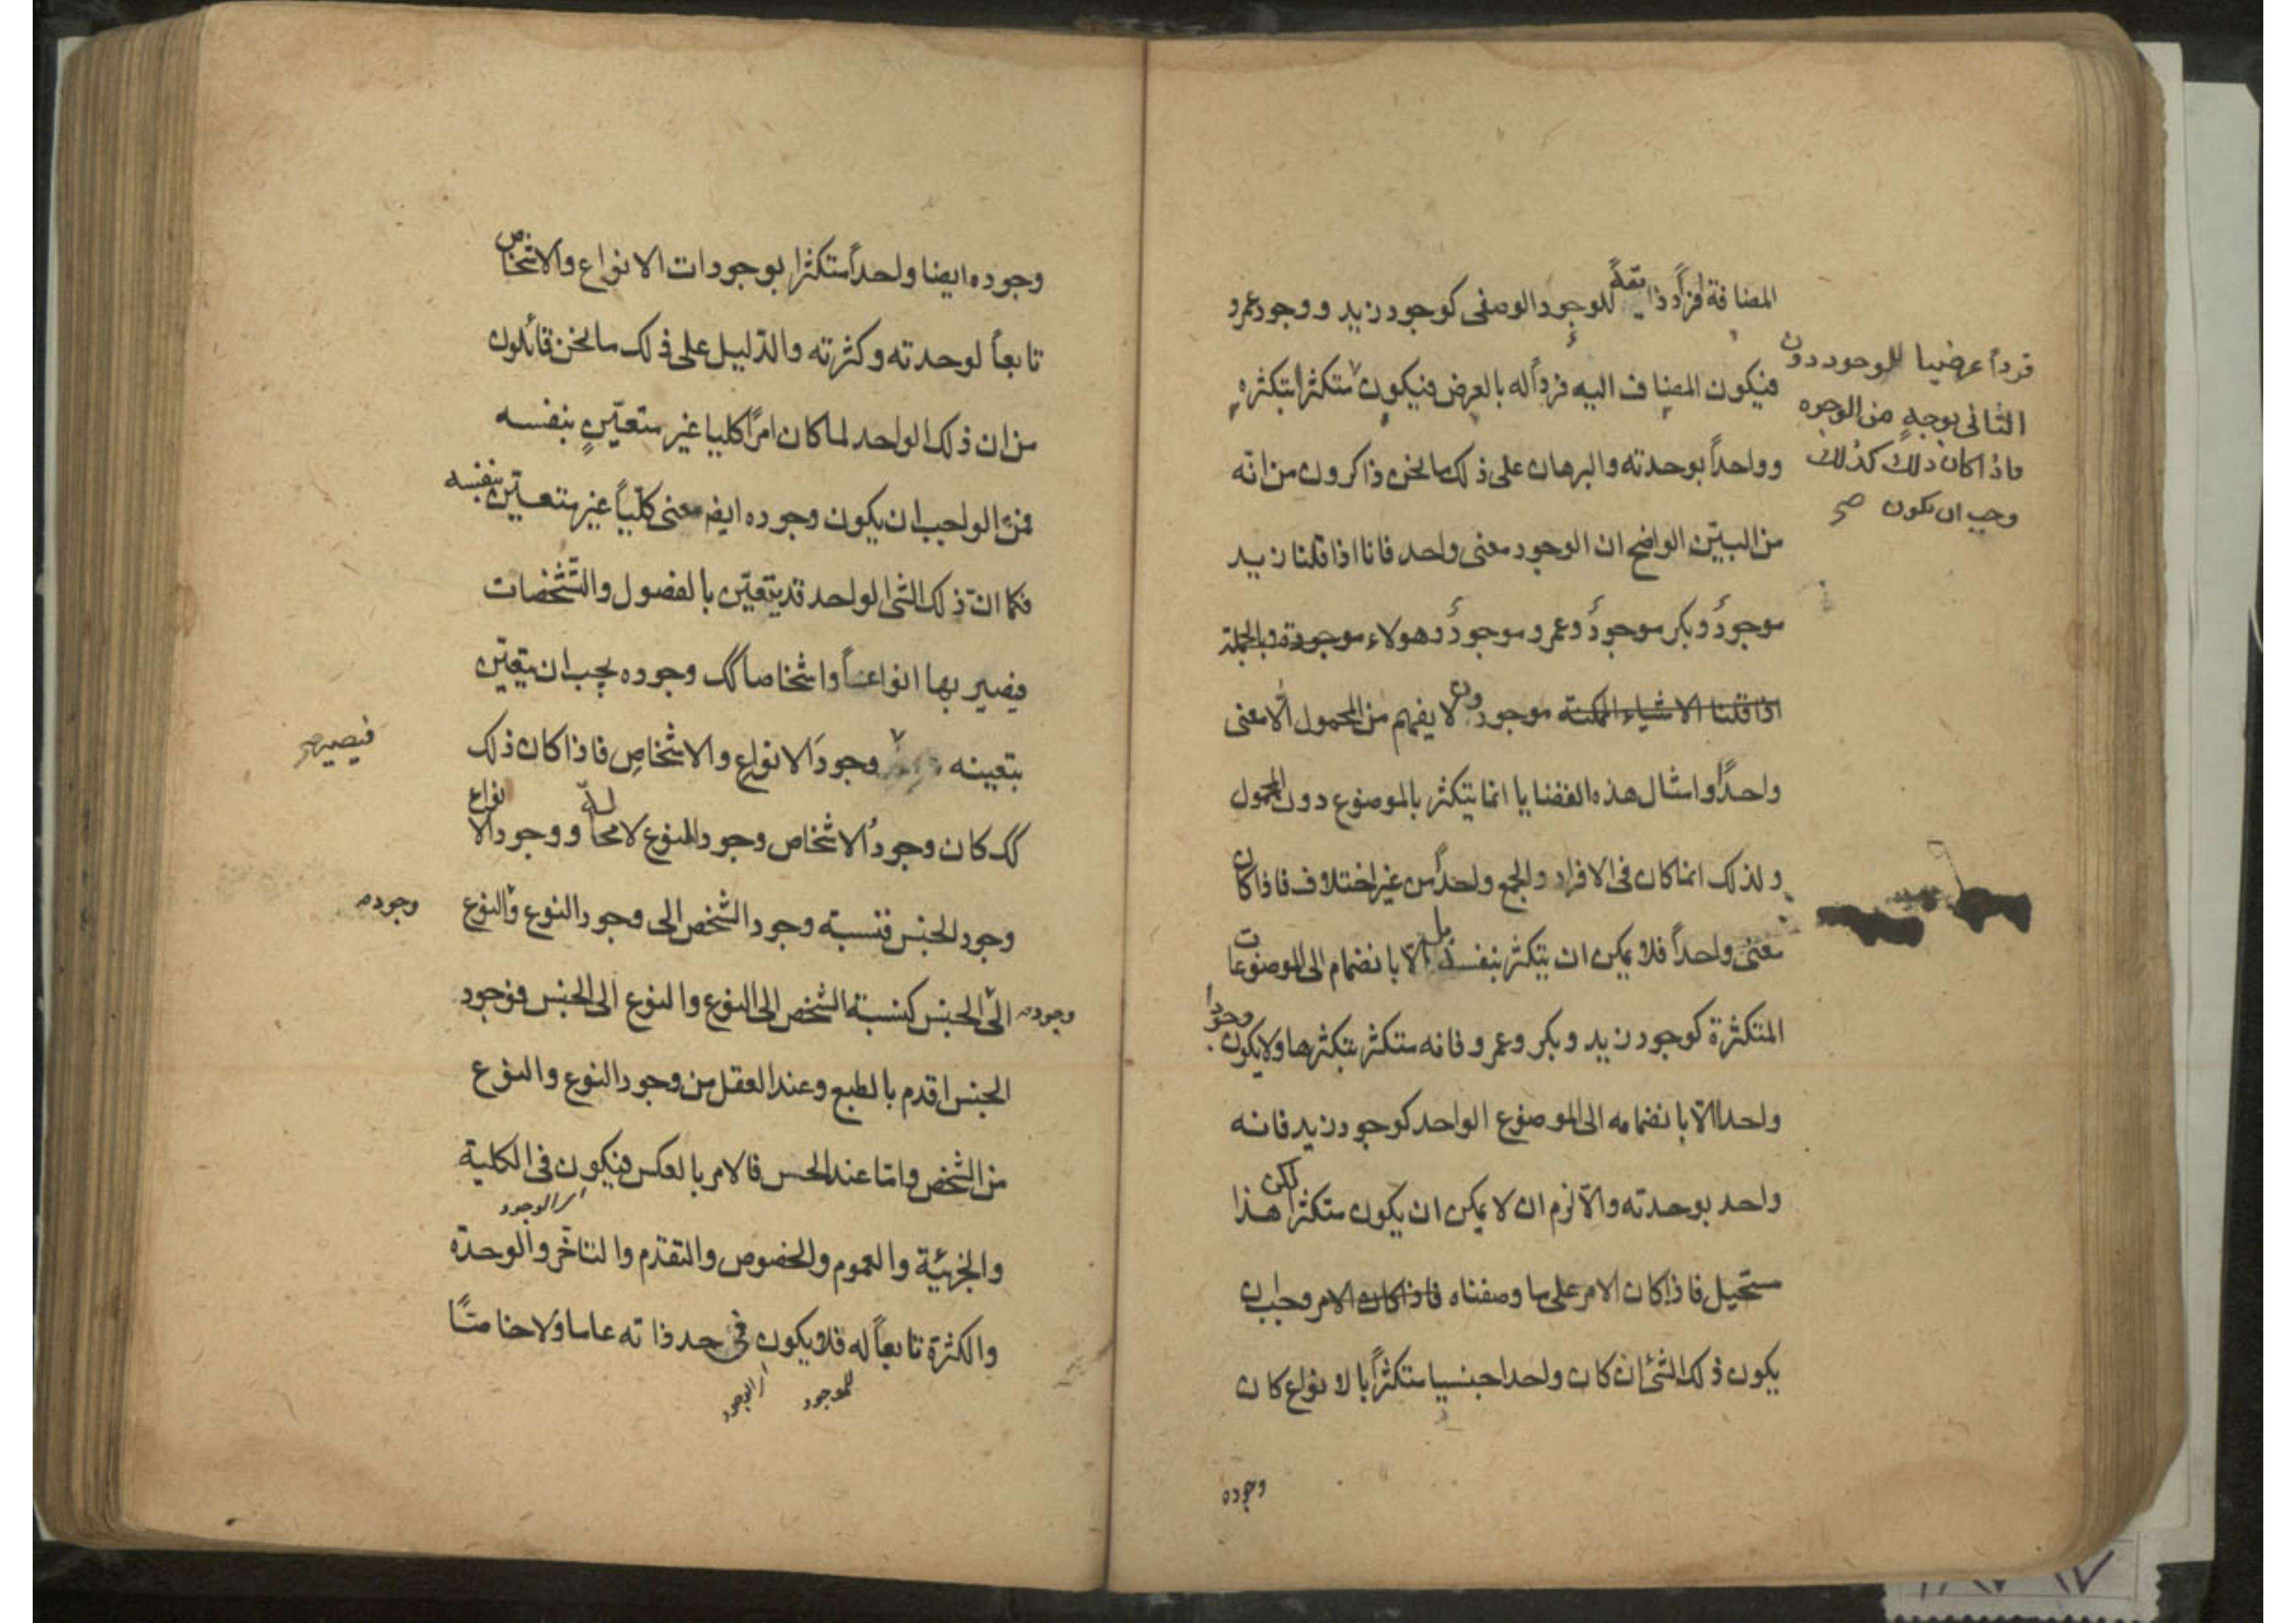 المضافة افراد ذاتية للوجود الوصفى كوجود زيد ووجود عمرو
فيكون المضاف اليه فرداً له بالعرض فيكون متكثراً بتكثره
وواحداً بوحدته والبرهان على ذلك ما نحن ذاكرون من انه
من البيّن الواضح ان الوجود معنى واحد فانا اذا قلنا زيد
موجودٌ وبكر موجودٌ وعمرو موجودٌ وهولاء موجودة وبالجملة
اذا قلنا الاشياء الممكنة موجودون لا يفهم من المحمول الّا معنى
واحداً وامثال هذه القضايا انما يتكثر بالموضوع دون المحمول
ولذلك انما كان فى الافراد والجمع واحداً من غير اختلاف فاذا كان
معنى واحداً فلا يمكن ان يتكثر بنفسه بل الّا بانضمام الى الموضوعات
المتكثرة كوجود زيد وبكر وعمرو فانه متكثر بتكثرها ولا يكون وجودا
واحدا الّا بانضمامه الى الموضوع الواحد كوجود زيد فانه
واحد بوحدته والّا لزم ان لا يمكن ان يكون متكثرا لكن هذا
مستحيل فاذا كان الامر على ما وصفناه فاذا كان الامر وجب ان
يكون ذلك الشئ ان كان واحدا جنسيا متكثراً بالانواع كان
وجوده
فرداً عرضيا للوجود دون
الثانى بوجهٍ من الوجوه
فاذا كان ذلك كذلك
وجب ان يكون صح
وجوده ايضا واحداً متكثرا بوجودات الانواع والاشخاص
تابعاً لوحدته وكثرته والدّليل على ذلك ما نحن قائلون
من ان ذلك الواحد لما كان امرًا كليا غير متعيّنٍ بنفسه
فمن الواجب ان يكون وجوده ايضم معنى كلّيّاً غير متعيّن بنفسه
فكما انّ ذلك الشئ الواحد قد يتعيّن بالفصول والتّشخصات
فيصير بها انواعاً واشخاصا كك وجوده يجب ان يتعيّن
بتعينه وجودَ الانواع والاشخاصِ فاذا كان ذلك
فيصير صح
كك كان وجودُ الاشخاص وجود النوع لا محالة ووجود الانواع
وجود الجنس فنسبته وجود الشخص الى وجود النوع والنوع
وجوده
الى الجنس كنسبة الشخص الى النوع والنوع الى الجنس فوجود
وجوده
الجنس اقدم بالطبع وعند العقل من وجود النوع والنوع
من الشخص وامّا عند الحس فالامر بالعكس فيكون فى الكلية
اى الوجود
والجزئيّة والعموم والخصوص والتقدّم والتّاخّر والوحدة
والكثرة تابعاً له فلا يكون فى حد ذاته عاما ولا خاصّا
للموجود
اى الوجود